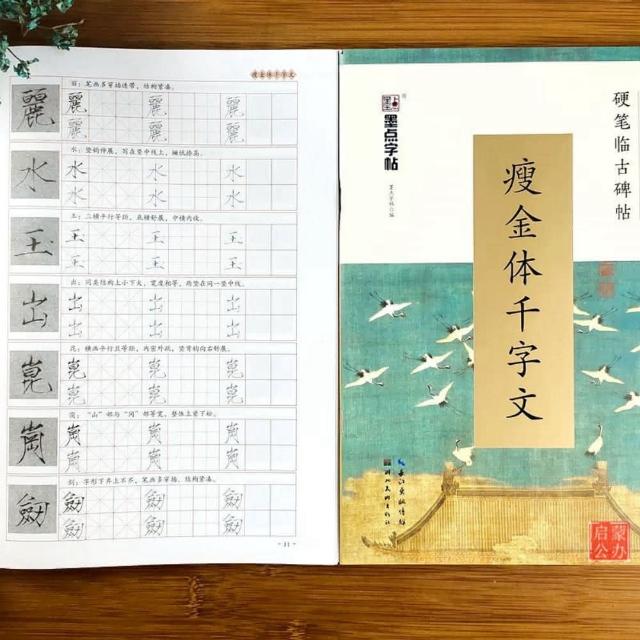 瘦金体千字文
丽：笔画多穿插连带，结构紧凑。
麗 麗 麗 麗
麗 麗 麗
水：竖钩伸展，写在竖中线上，捺低撇高。
水 水 水 水
水 水 水
玉：三横平行等距，底横舒展，中横内收。
玉 玉 玉 玉
玉 玉 玉
出：同类结构上小下大，宽度相等，两竖在同一竖中线。
出 出 出 出
出 出 出
横画平行且等距，内密外疏，竖弯钩向右舒展。
崑 崑 崑 崑
崑 崑 崑
岗：“山”部与“冈”部等宽，整体上紧下松。
崗 崗 崗 崗
崗 崗 崗
剑：字形下齐上不齐，笔画多穿插，结构紧凑。
劒 劒 劒 劒
劒 劒 劒
- 11 -
硬笔临古碑帖
墨点字帖
瘦金体千字文
启蒙
公办